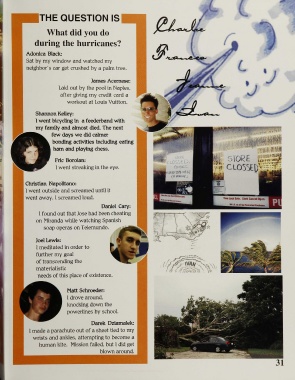 THE QUESTION IS
What did you do
during the hurricanes?
Adonica Black:
Sat by my window and watched my
neighbor's car get crushed by a palm tree.
James Acernase:
Laid out by the pool in Naples,
after giving my credit card a
workout at Louis Vuitton.
Shannon Kelley:
I went bicycling in a feederband with
my family and almost died. The next
few days we did calmer
bonding activities including eating
ham and playing chess.
Eric Borolan:
I went streaking in the eye.
Christian Napolitano:
I went outside and screamed until it
went away. I screamed loud.
Daniel Cary:
I found out that Jose had been cheating
on Miranda while watching Spanish
soap operas on Telemundo.
Joel Lewis:
I meditated in order to
further my goal
of transcending the
materialistic
needs of this place of existence.
Matt Schroeder:
I drove around,
knocking down the
powerlines by school.
Derek Dziamalek:
I made a parachute out of a sheet tied to my
wrists and ankles, attempting to become a
human kite. Mission failed, but I did get
blown around.
Charlie
Frances
Jeanne
Ivan
STORE
CLOSED
31